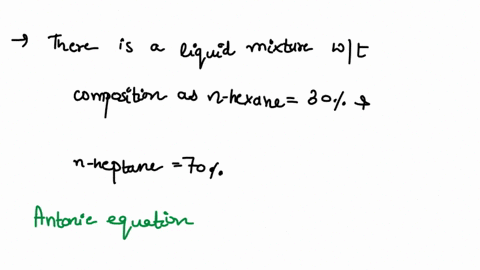 → There is a liquid mixture w/t
composition as n-hexane = 30% +
n-heptane = 70%.
Antonie equation